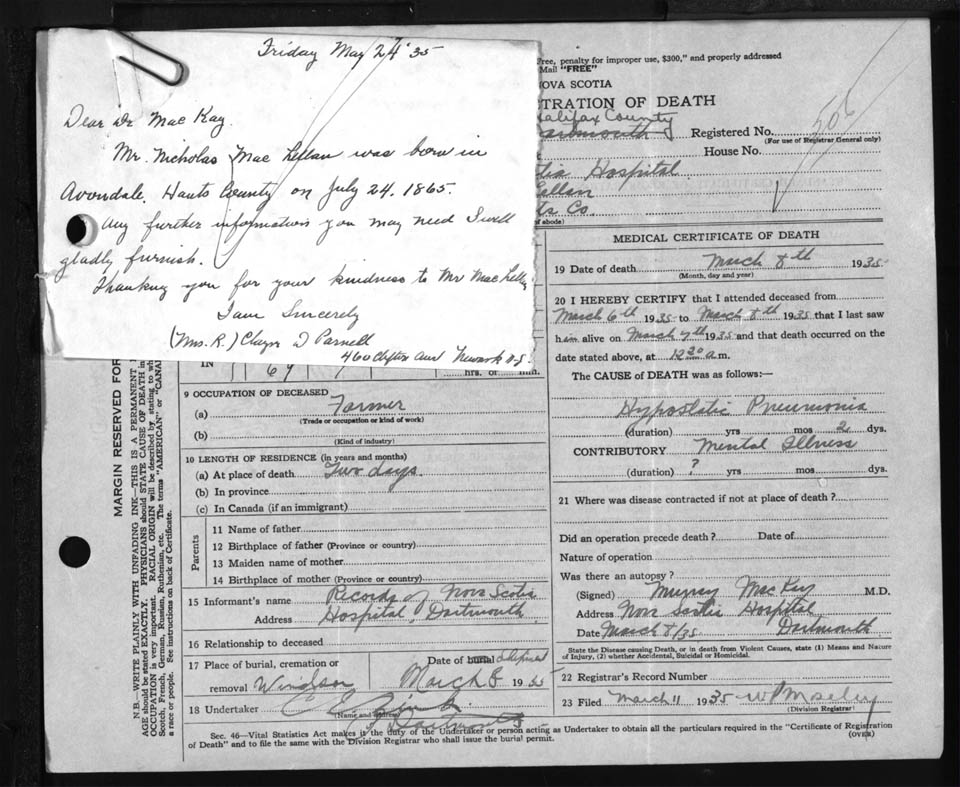 Friday May 24 '35
Dear Dr Mac Kay.
Mr. Nicholas Mac Lellan was born in
Avondale, Hants County on July 24. 1865.
Any further information you may need I will
gladly furnish.
Thanking you for your kindness to Mr Mac Lellan
I am Sincerely
(Mrs. R.) D Parnell
460 Clifton Newark N.J.
Free, penalty for improper use, $300," and properly addressed
Mail "FREE"
NOVA SCOTIA
TRATION OF DEATH
Halifax County
Dartmouth
Registered No. 506
(For use of Registrar General only)
House No.
tia Hospital
Lellan
ts Co.
of abode)
MARGIN RESERVED FOR
N.B.—WRITE PLAINLY WITH UNFADING INK—THIS IS A PERMANENT
AGE should be stated EXACTLY. PHYSICIANS should STATE CAUSE OF DEATH in
OCCUPATION is very important. RACIAL ORIGIN will be described by stating to wh
Scotch, French, German, Russian, Ruthenian, etc. The terms "AMERICAN" or "CANA
a race or people. See instructions on back of Certificate.
IN 69 hrs. or min.
9 OCCUPATION OF DECEASED
(a) Farmer
(Trade or occupation or kind of work)
(b)
(Kind of industry)
10 LENGTH OF RESIDENCE (in years and months)
(a) At place of death Two days.
(b) In province
(c) In Canada (if an immigrant)
Parents
11 Name of father
12 Birthplace of father (Province or country)
13 Maiden name of mother
14 Birthplace of mother (Province or country)
15 Informant's name Records of Nova Scotia
Address Hospital, Dartmouth
16 Relationship to deceased
17 Place of burial, cremation or
removal Windsor
Date of burial
March 8 1935
18 Undertaker
(Name and address)
Dartmouth
MEDICAL CERTIFICATE OF DEATH
19 Date of death March 8th 1935
(Month, day and year)
20 I HEREBY CERTIFY that I attended deceased from
March 6th 1935 to March 8th 1935 that I last saw
him alive on March 7th 1935 and that death occurred on the
date stated above, at 12 20 a.m.
The CAUSE of DEATH was as follows:—
Hypostatic Pneumonia
(duration) yrs mos 2 dys.
CONTRIBUTORY Mental Illness
(duration) ? yrs mos dys.
21 Where was disease contracted if not at place of death?
Did an operation precede death? Date of
Nature of operation
Was there an autopsy?
(Signed) Murray MacKay M.D.
Address Nova Scotia Hospital
Date March 8/35 Dartmouth
State the Disease causing Death, or in death from Violent Causes, state (1) Means and Nature
of Injury, (2) whether Accidental, Suicidal or Homicidal.
22 Registrar's Record Number
23 Filed March 11 1935 W Mosely
(Division Registrar)
Sec. 46—Vital Statistics Act makes it the duty of the Undertaker or person acting as Undertaker to obtain all the particulars required in the "Certificate of Registration
of Death" and to file the same with the Division Registrar who shall issue the burial permit.
(OVER)